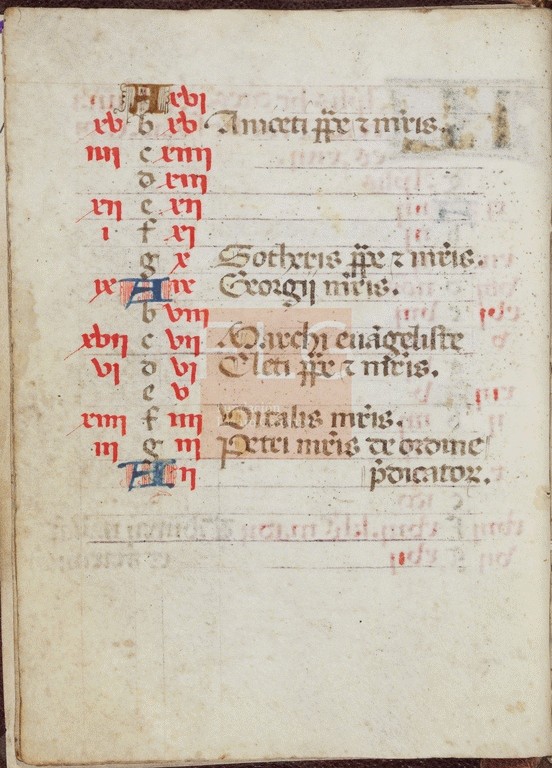 A xvi
xv b xv Aniceti pp̄e ⁊ mr̄is.
iiii c xiiii
d xiii
xii e xii
i f xi
g x Sotheris pp̄e ⁊ mr̄is.
ix A ix Georgij mr̄is.
b viii
xvii c vii Marchi euāgeliste
vi d vi Cleti pp̄e ⁊ mr̄is.
e v
xiiii f iiii Vitalis mr̄is.
iii g iii Petri mr̄is de ordine
A ii p̄dicator.